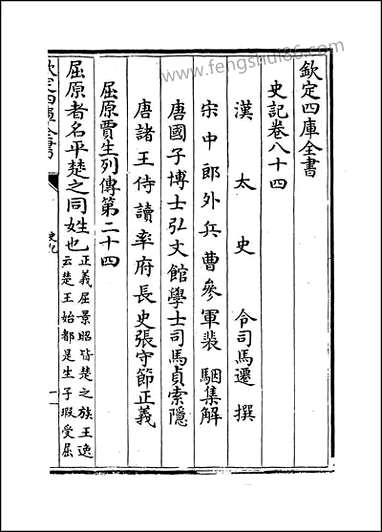 欽定四庫全書
史記卷八十四
漢太史令司馬遷撰
宋中郎外兵曹參軍裴駰集解
唐國子博士弘文館學士司馬貞索隱
唐諸王侍讀率府長史張守節正義
屈原賈生列傳第二十四
屈原者名平楚之同姓也正義屈景昭皆楚之族王逸
云楚王始都是生子瑕受屈
欽定四庫全書
史記
www.fengshui86.com